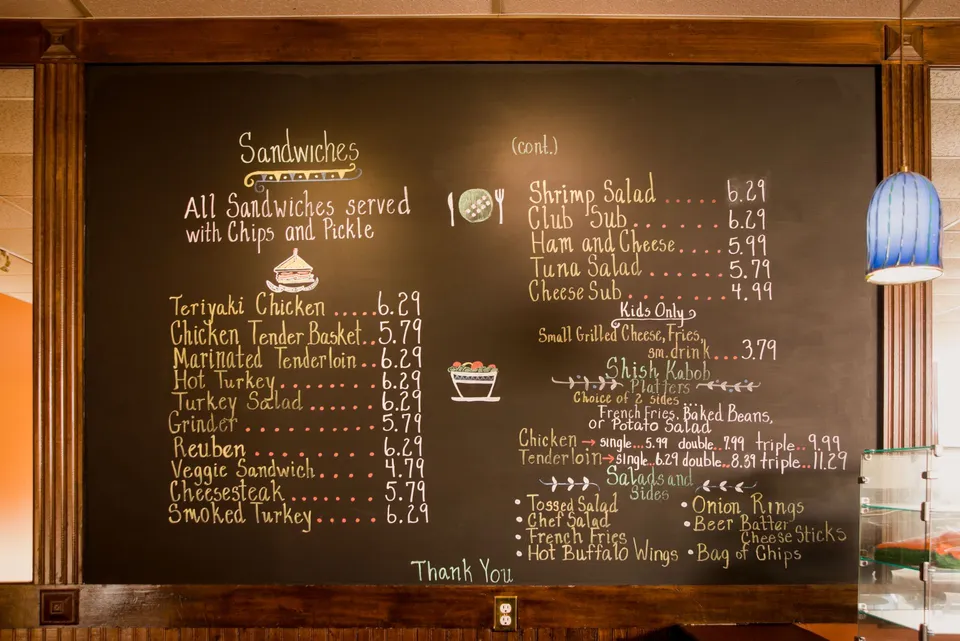 Sandwiches
All Sandwiches served
with Chips and Pickle
Teriyaki Chicken ..... 6.29
Chicken Tender Basket.. 5.79
Marinated Tenderloin.. 6.29
Hot Turkey........ 6.29
Turkey Salad ...... 6.29
Grinder.......... 5.79
Reuben ......... 6.29
Veggie Sandwich.... 4.79
Cheesesteak....... 5.79
Smoked Turkey..... 6.29
(cont.)
Shrimp Salad ..... 6.29
Club Sub....... 6.29
Ham and Cheese.... 5.99
Tuna Salad ...... 5.79
Cheese Sub....... 4.99
Kids Only
Small Grilled Cheese, Fries,
sm. drink.... 3.79
Shish Kabob
Platters
Choice of 2 sides...
French Fries, Baked Beans,
or Potato Salad
Chicken → single...5.99 double..7.99 triple...9.99
Tenderloin → single..6.29 double..8.39 triple..11.29
Salads and
Sides
• Tossed Salad
• Chef Salad
• French Fries
• Hot Buffalo Wings
• Onion Rings
• Beer Batter
Cheese Sticks
• Bag of Chips
Thank You